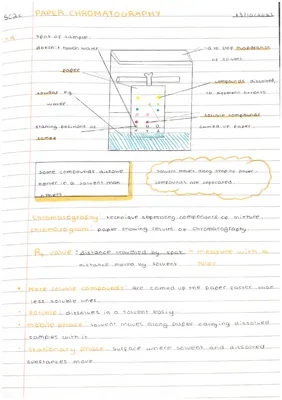 SC2c PAPER CHROMATOGRAPHY
spot of sample
doesn't touch water
paper
solvent e.g.
water
starting positions of
lid to stop
of solvent
compounds dissolved
soluble compounds
carried up paper
some compounds dissolve
better in a solvent than
others
solvent moves along strip of paper
compounds are separated
Chromatography - technique separating compounds in mixture
chromatogram - paper showing results of chromatography.
RF value - "distance travelled by spot" measure with a
distance moved by solvent
more soluble compounds are carried up the paper faster than
less soluble ones.
soluble - dissolves in a solvent easily
mobile phase - solvent moves along paper carrying dissolved
samples with it
stationary phase - surface where solvent and dissolved
substances move